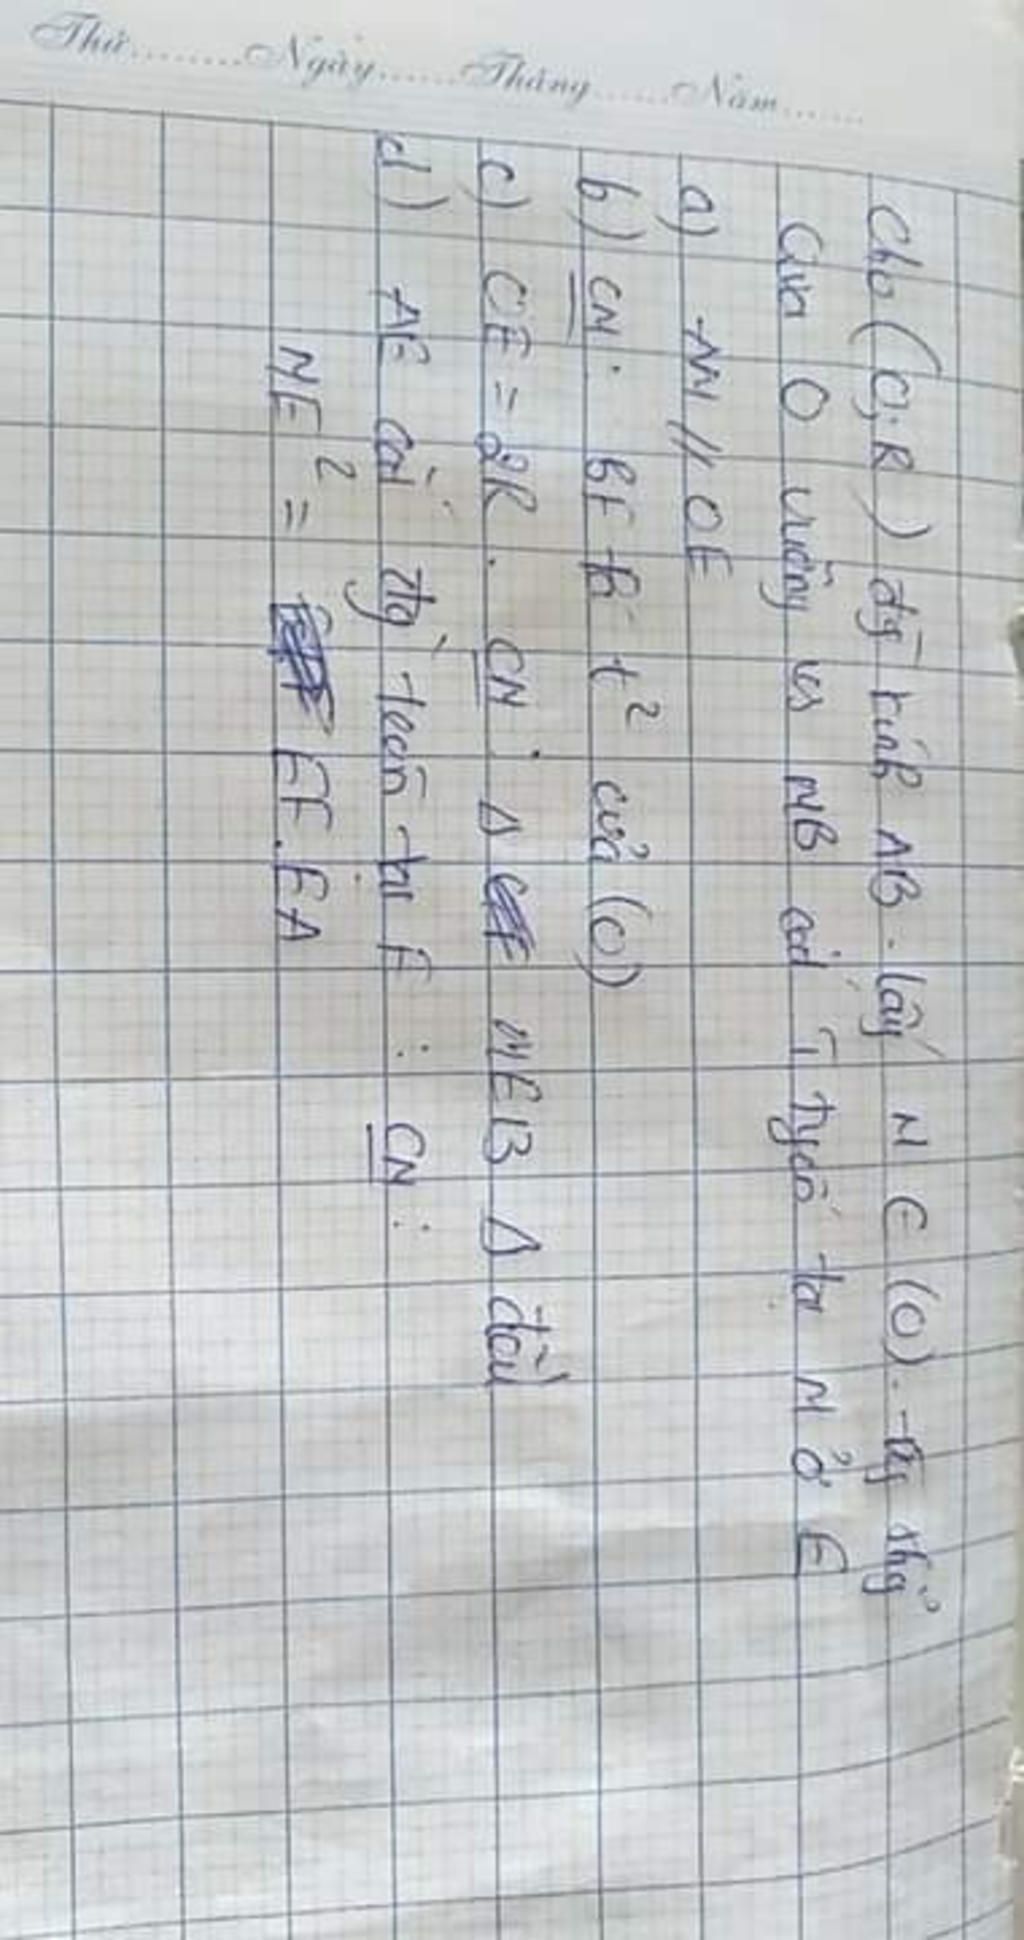 Thứ.........Ngày......Tháng......Năm.......
Cho (O;R) đg kính AB. lấy M ∈ (O).
Qua O vuông vs MB cắt T tyến tại M ở E
a) AM // OE
b) CM: BE là t² của (O)
c) OE = 2R. CM: Δ MEB Δ đều
d) AE cắt đg tròn tại F: CM:
ME² = EF.EA